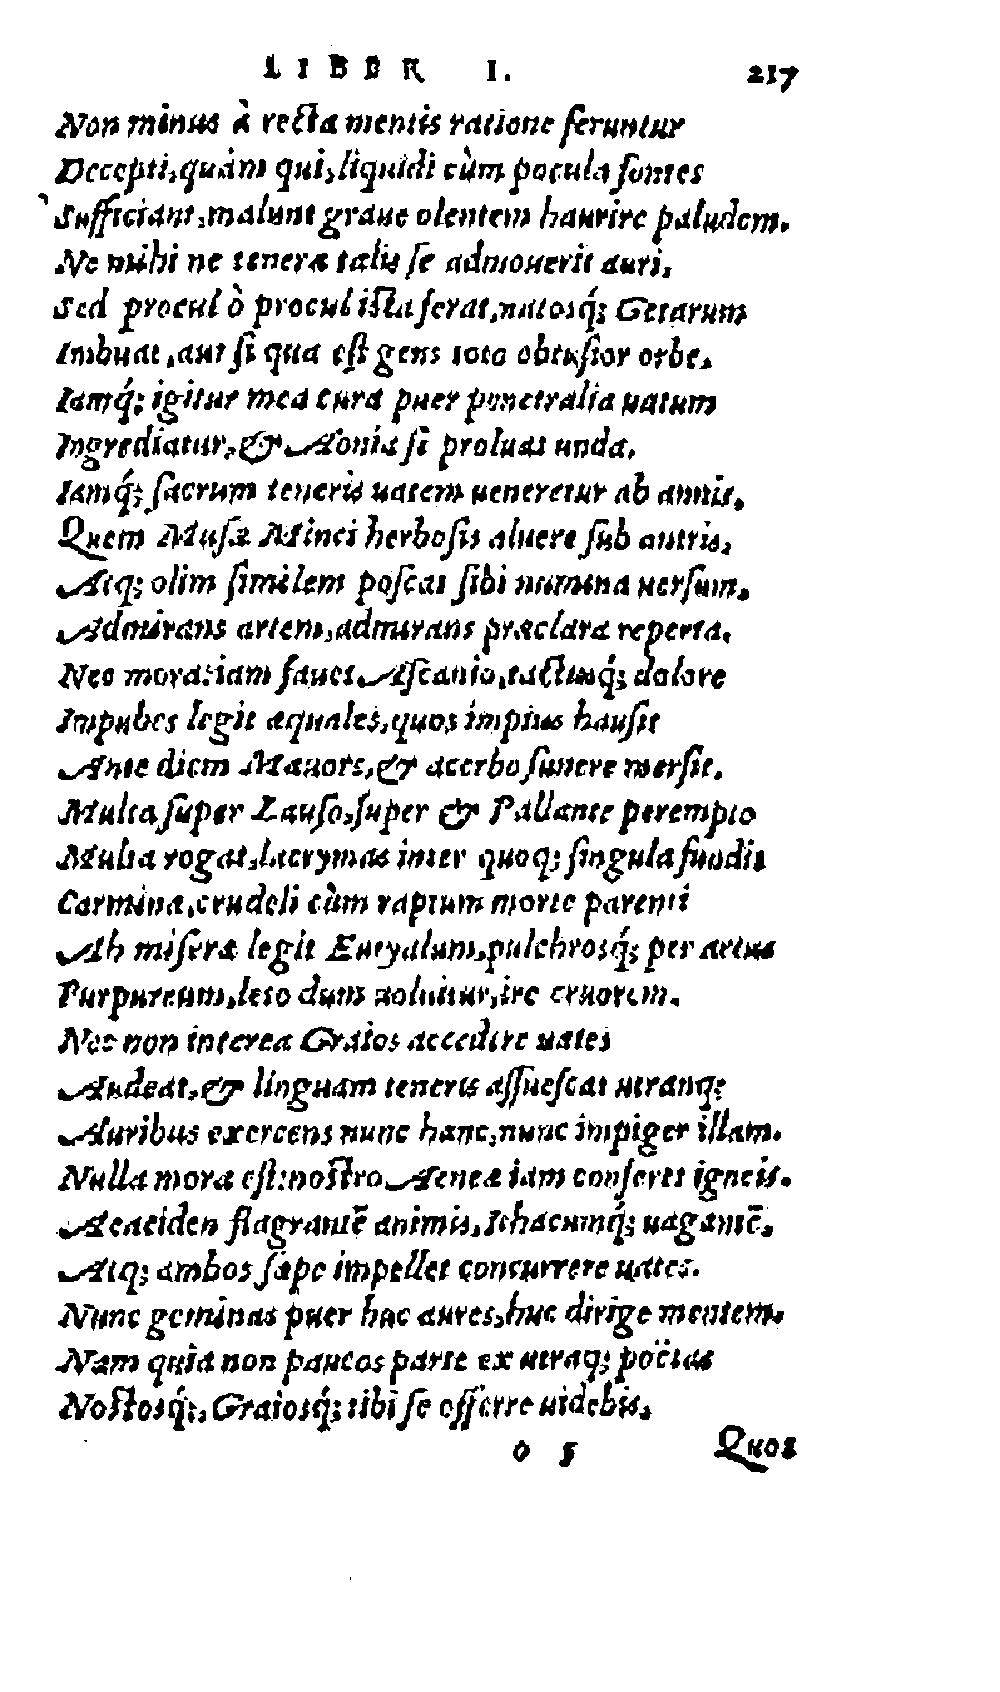 LIBER I. 217
Non minus à recta mentis ratione feruntur
Decepti, quàm qui, liquidi cùm pocula fontes
Sufficiant, malunt graue olentem haurire paludem.
Ne mihi ne teneræ talis se admouerit auri,
Sed procul ò procul ista ferat, natosq́; Getarum
Imbuat, aut si qua est gens toto obtusior orbe.
Iamq́; igitur mea cura puer penetralia uatum
Ingrediatur, & Aonia si proluat unda.
Iamq́; sacrum teneris uatem ueneretur ab annis.
Quem Musæ Minci herbosis aluere sub antris,
Atq; olim similem poscat sibi numina uersum.
Admirans artem, admirans præclara reperta.
Nec mora: iam fauet Ascanio, tactusq́; dolore
Impubes legit æquales, quos impius hausit
Ante diem Mauors, & acerbo funere mersit.
Multa super Lauso, super & Pallante perempto
Multa rogat, lacrymas inter quoq; singula fundit
Carmina, crudeli cùm raptum morte parenti
Ah miseræ legit Euryalum, pulchrosq́; per artus
Purpureum, leto dum uoluitur, ire cruorem.
Nec non interea Graios accedere uates
Audeat, & linguam teneris assuescat utranq;
Auribus exercens nunc hanc, nunc impiger illam.
Nulla mora est: nostro Aenea iam conferet igneis.
Aeaciden flagrantē animis, Ithacumq́; uagantē.
Atq; ambos sæpe impellet concurrere uates.
Nunc geminas puer huc aures, huc dirige mentem.
Nam quia non paucos parte ex utraq; poëtas
Nostrosq́;, Graiosq́; tibi se offerre uidebis.
o 5 Quos